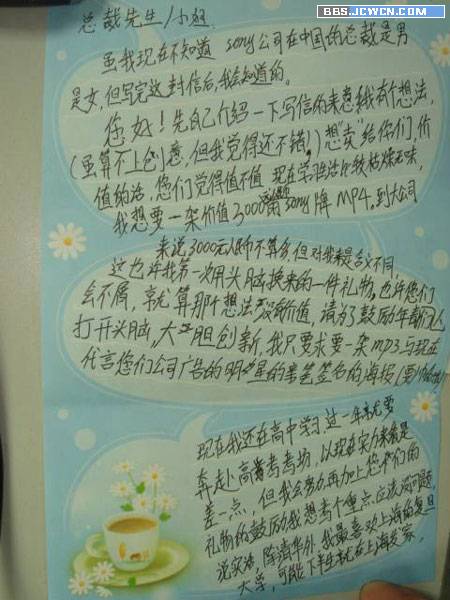 BBS.JCWCN.COM
总裁先生/小姐
虽我现在不知道 sony公司在中国的总裁是男
是女,但写完这封信后,我会知道的。
您好!先自己介绍一下写信的来意我有个想法,
(虽算不上创意,但我觉得还不错!)想"卖"给你们,价
值的话,您们觉得值不值 现在学习生活比较枯燥无味,
我想要一架价值3000的sony牌MP4,到大公司
来说3000元人民币不算多,但对我来说含义不同,
这也许我第一次用头脑换来的一件礼物,也许您们
会不屑,就算那个想法没有价值,请为了鼓励年轻人
打开头脑,大胆创新,我只要求要一架mp3与现在
代言您们公司广告的明星的亲笔签名的海报(要
现在我还在高中学习过一年就要
奔赴高考考场,以现在实力来看是
差一点,但我会努力再加上您们的
礼物的鼓励我想考个重点应该没问题,
说实话,除清华外,我最喜欢上海的复旦
大学,可能下半生就在上海发家,